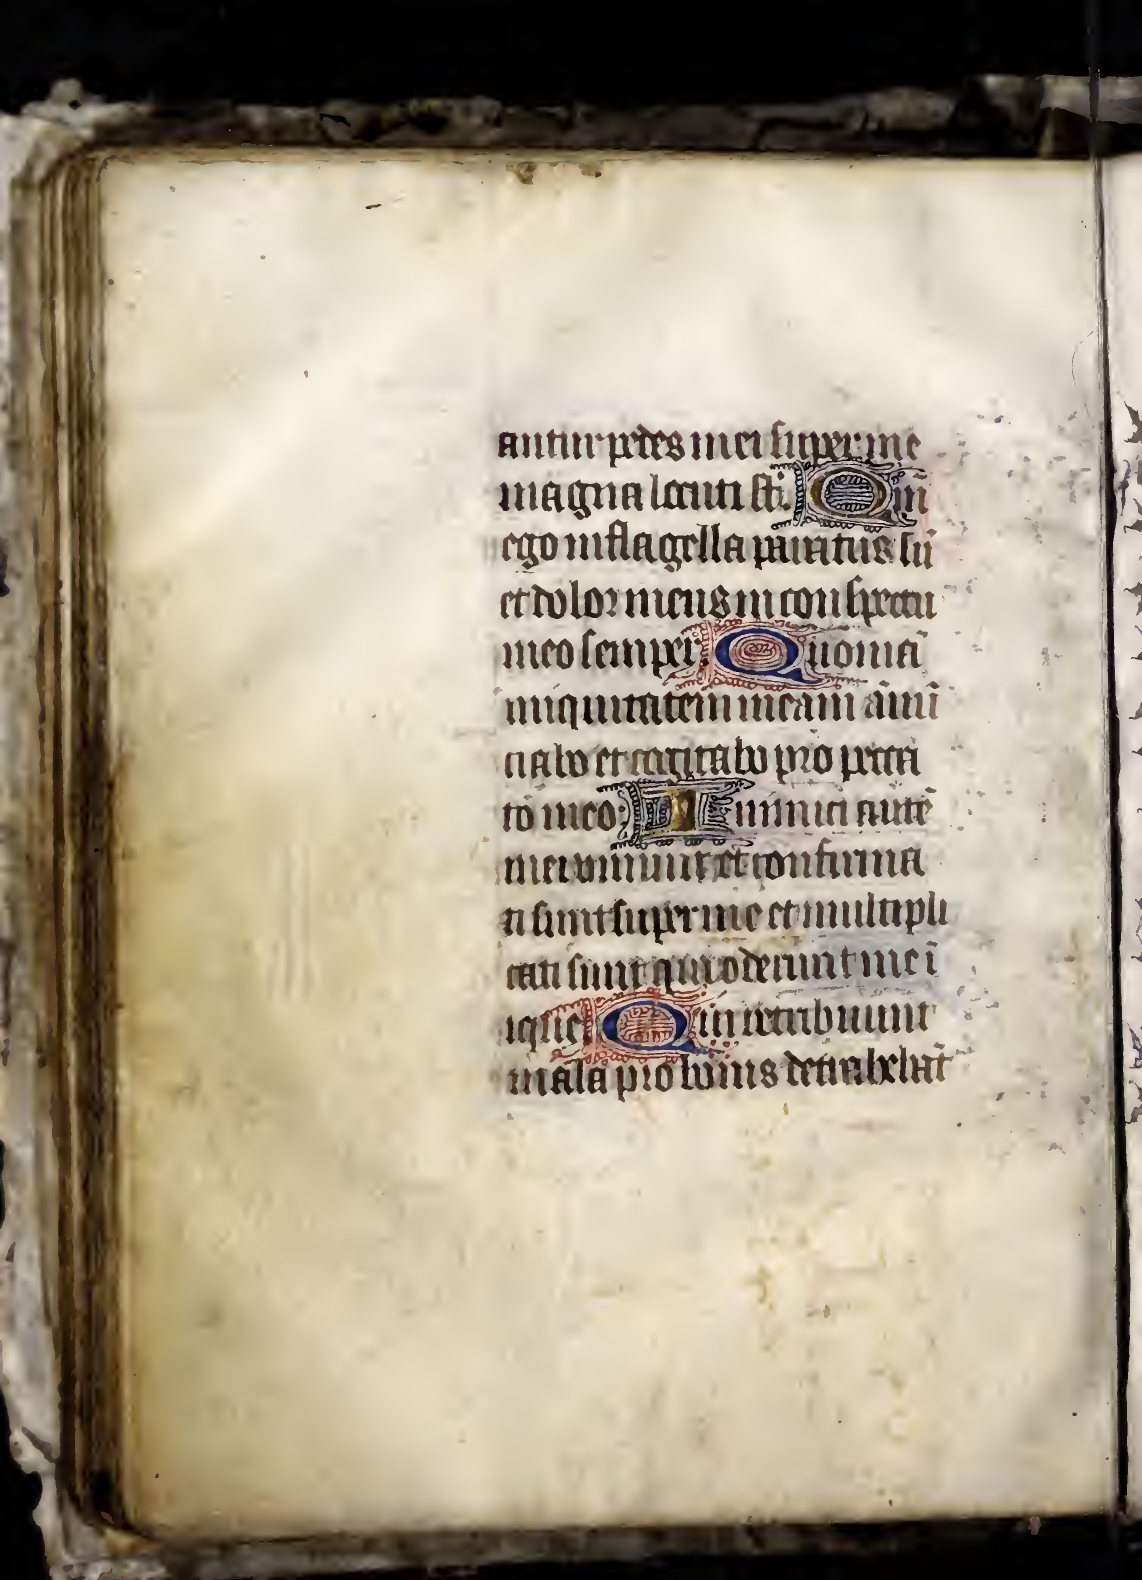 antur pedes mei super me
magna locuti st̄: Qm̄
ego in flagella paratus sū
et dolor meus in conspectu
meo semper. Quoniā
iniquitatem meam ānū
ciabo et cogitabo pro pecca
to meo: Inimici autē
mei vivunt et confirma
ti sunt super me et multipli
cati sunt qui oderunt me ī
ique Qui retribuunt
mala pro bonis detrahebāt